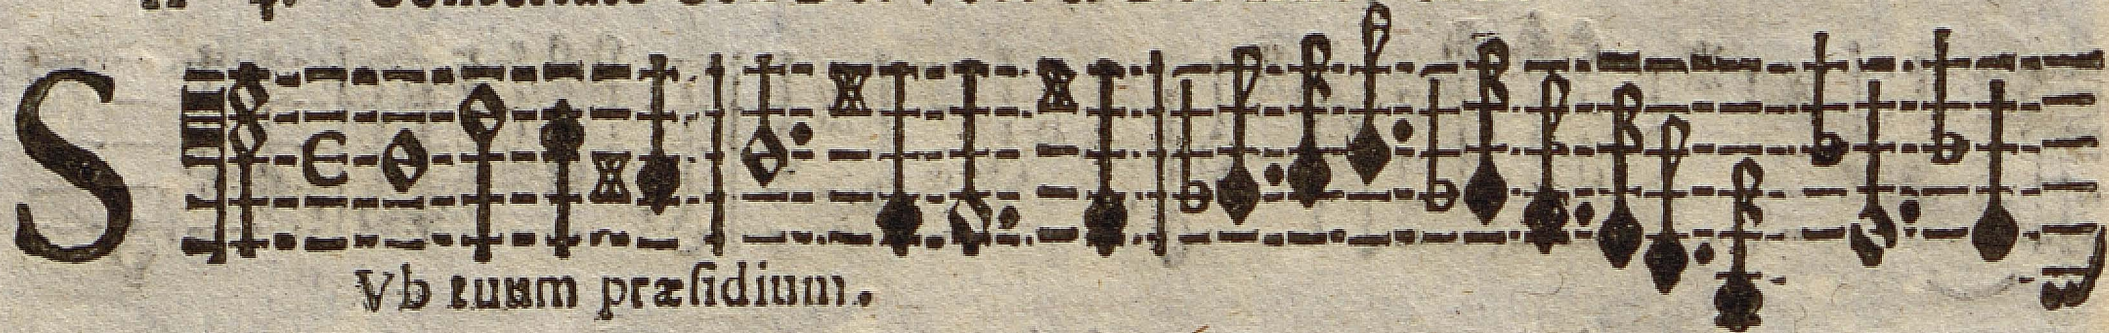 S
Vb tuum præſidium.